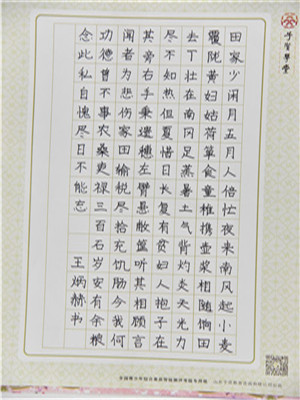 田家少闲月五月人倍忙夜来南风起小麦
覆陇黄妇姑荷箪食童稚携壶浆相随饷田
去丁壮在南冈足蒸暑土气背灼炎天光力
尽不知热但夏惜日长复有贫妇人抱子在
其旁右手秉遗穗左臂悬敝筐听其相顾言
闻者为悲伤家田输税尽拾充饥肠今我何
功德曾不事农桑吏禄三百石岁安有余粮
念此私自愧尽日不能忘 王炳赫书